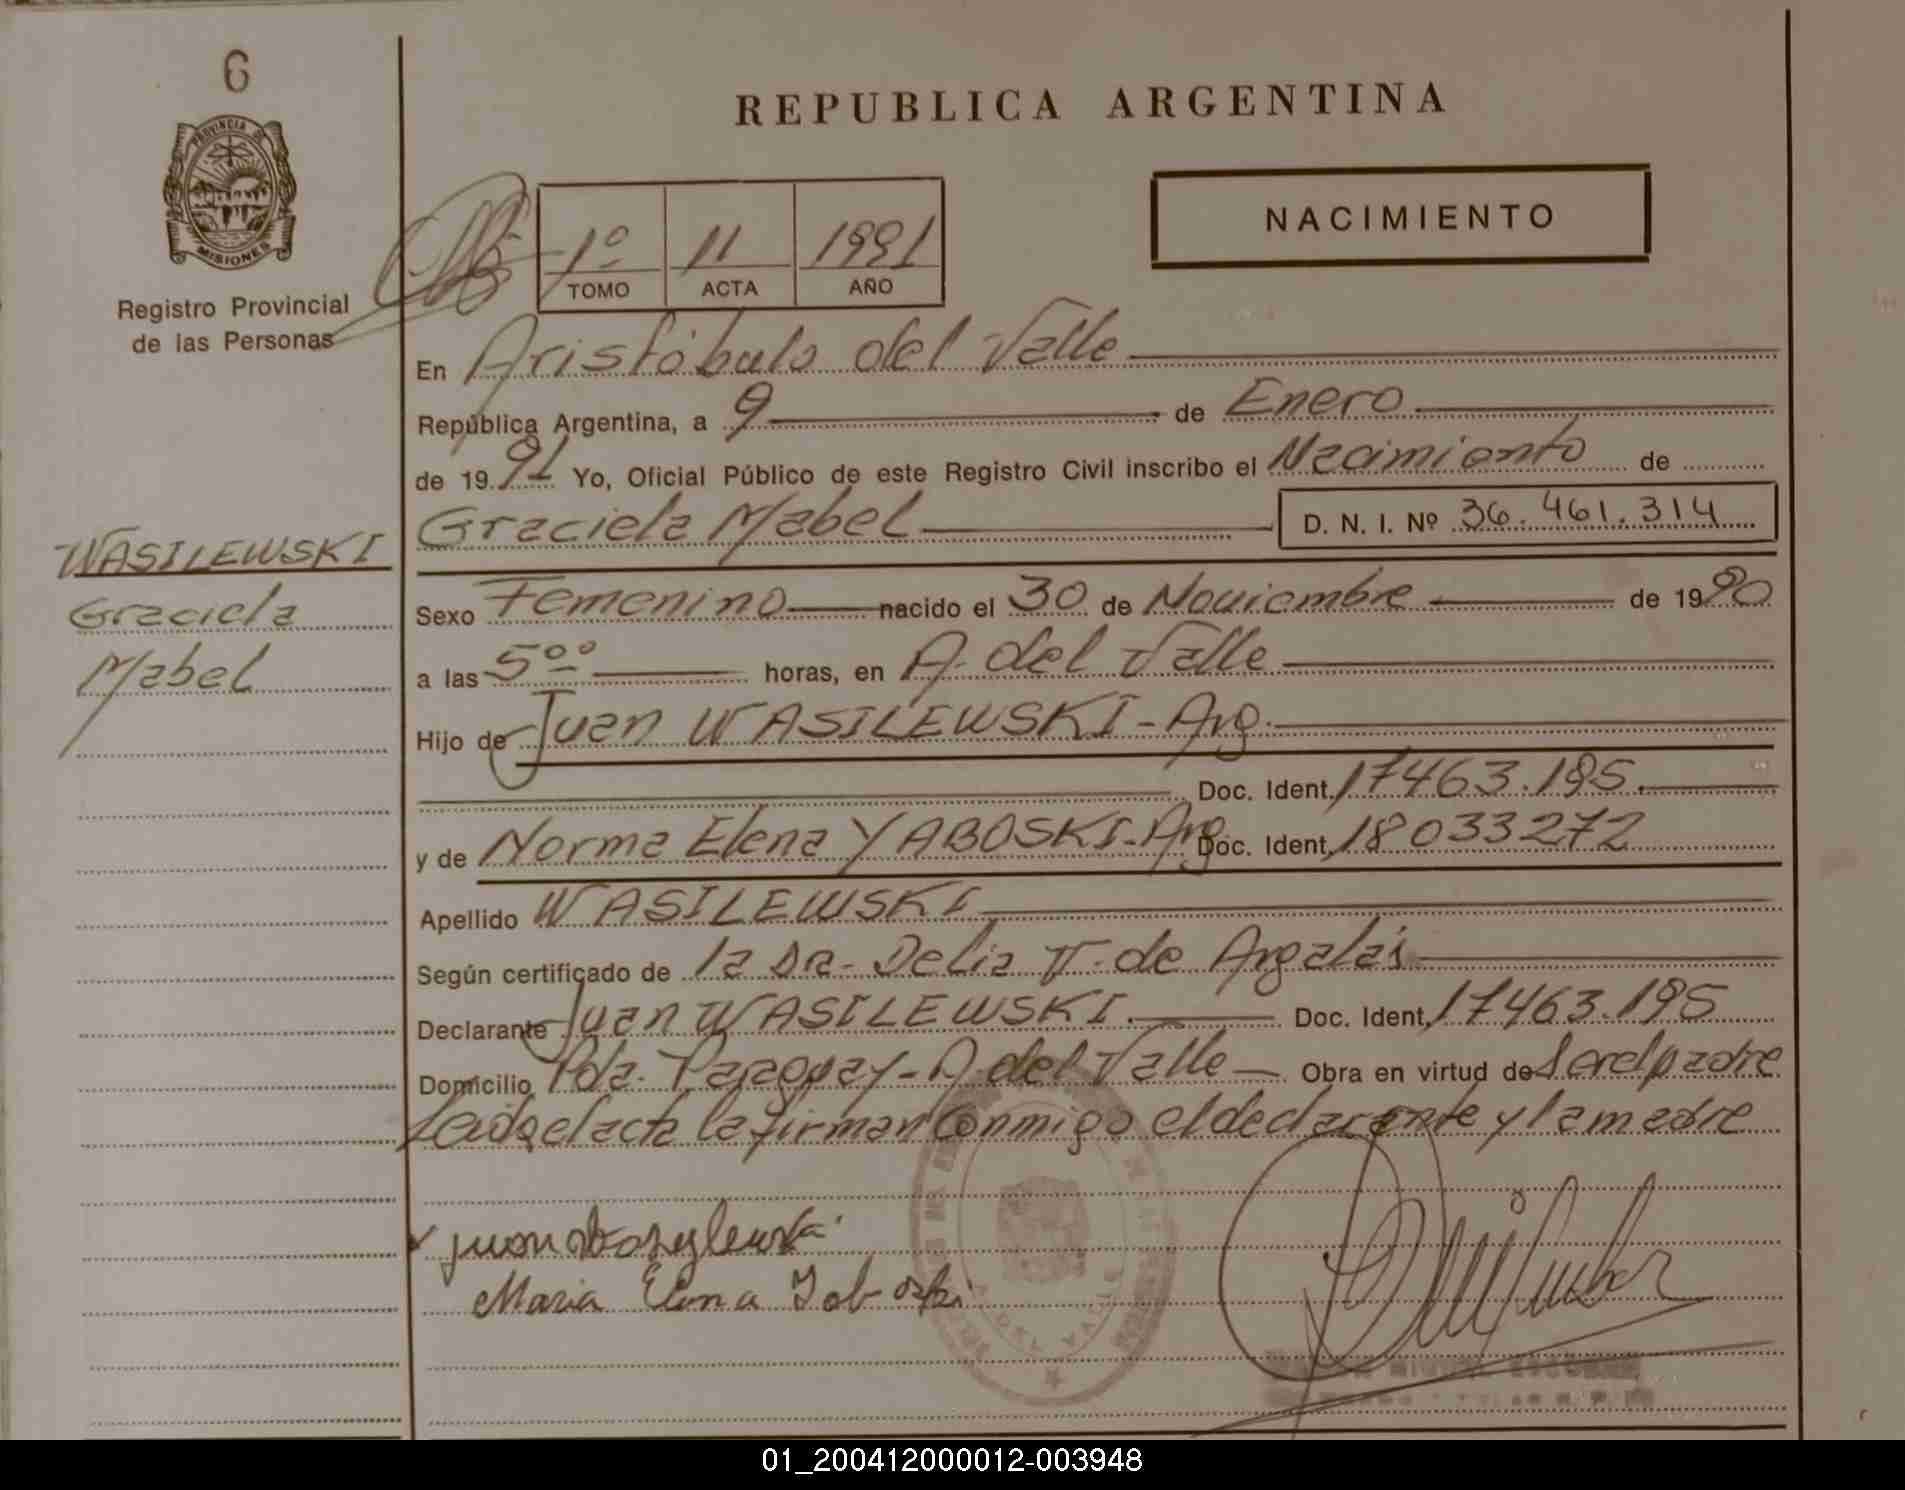 6
PROVINCIA DE
MISIONES
Registro Provincial
de las Personas
WASILEWSKI
Graciela
Mabel
REPUBLICA ARGENTINA
NACIMIENTO
1º 11 1991
TOMO ACTA AÑO
En Aristóbulo del Valle
República Argentina, a 9 de Enero
de 1991 Yo, Oficial Público de este Registro Civil inscribo el Nacimiento de
Graciela Mabel D. N. I. Nº 36.461.314
Sexo Femenino nacido el 30 de Noviembre de 1990
a las 5ºº horas, en A. del Valle
Hijo de Juan WASILEWSKI - Arg.
Doc. Ident. 17463.195
y de Norma Elena YABOSKI - Arg Doc. Ident. 18033272
Apellido WASILEWSKI
Según certificado de la Dra. Delia V. de Argalás
Declarante Juan WASILEWSKI Doc. Ident. 17463.195
Domicilio Pda. Paraguay - A. del Valle Obra en virtud de ser el padre
Leida el acta la firman conmigo el declarante y la madre
Maria Elena
01_200412000012-003948